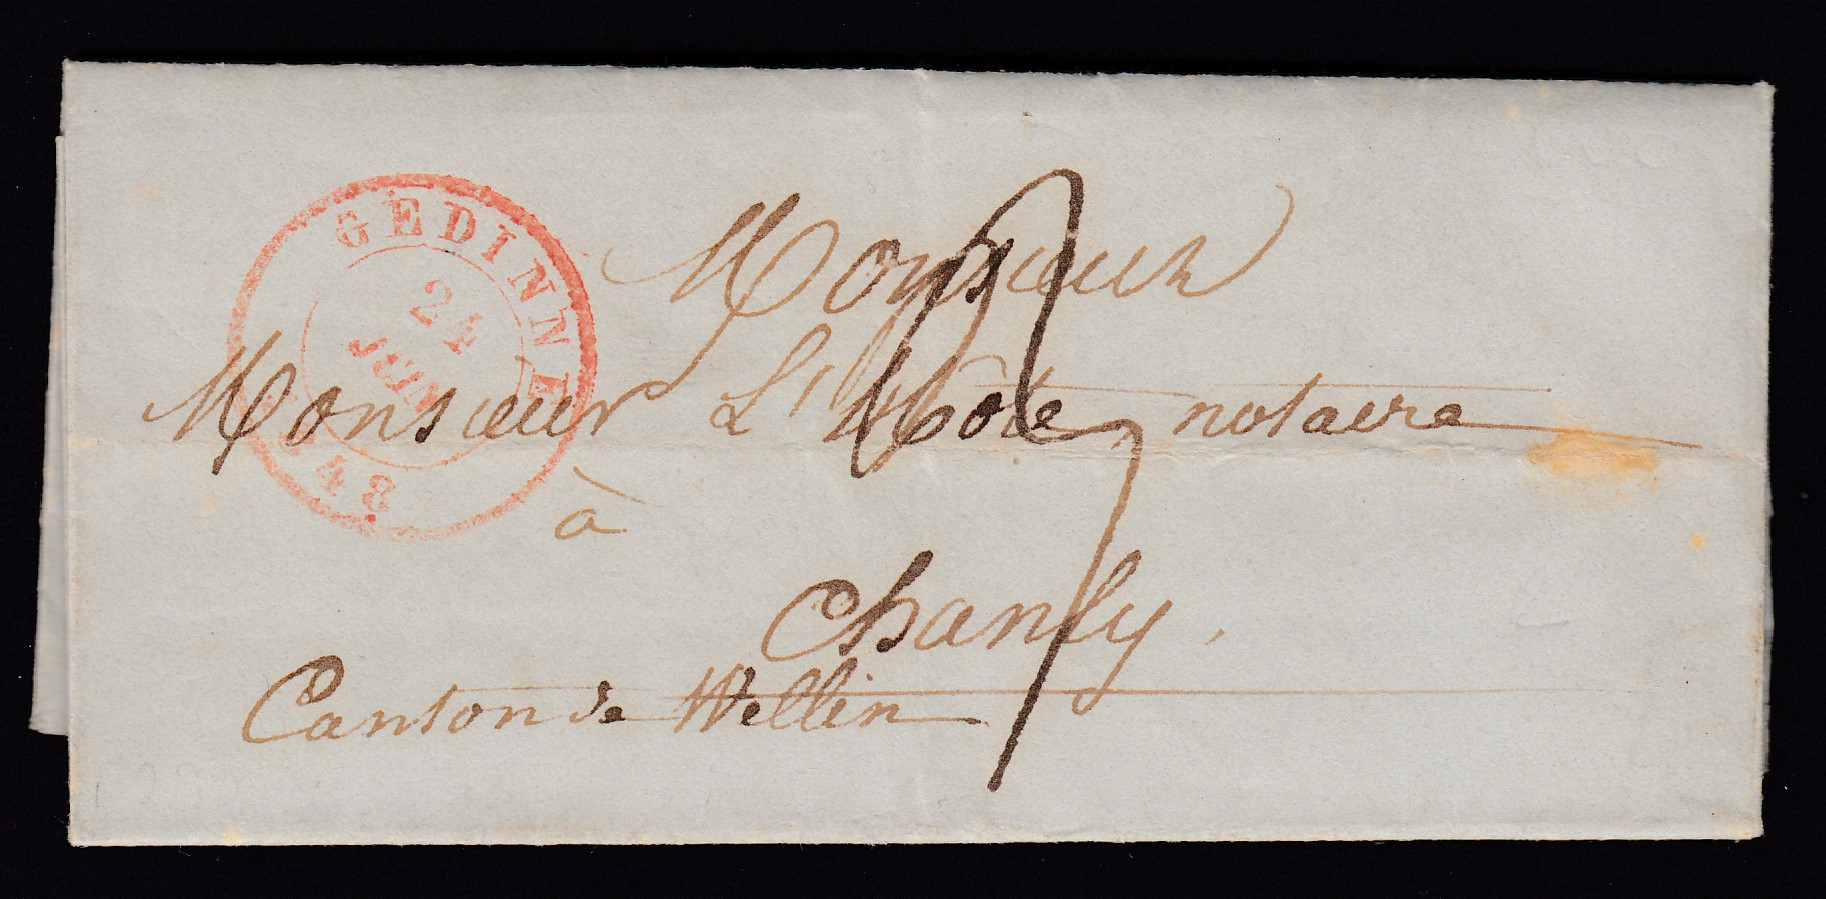 GEDINNE
24
JUIN
1848
Monsieur
Monsieur L'Hote notaire
à
Chanly,
Canton de Wellin